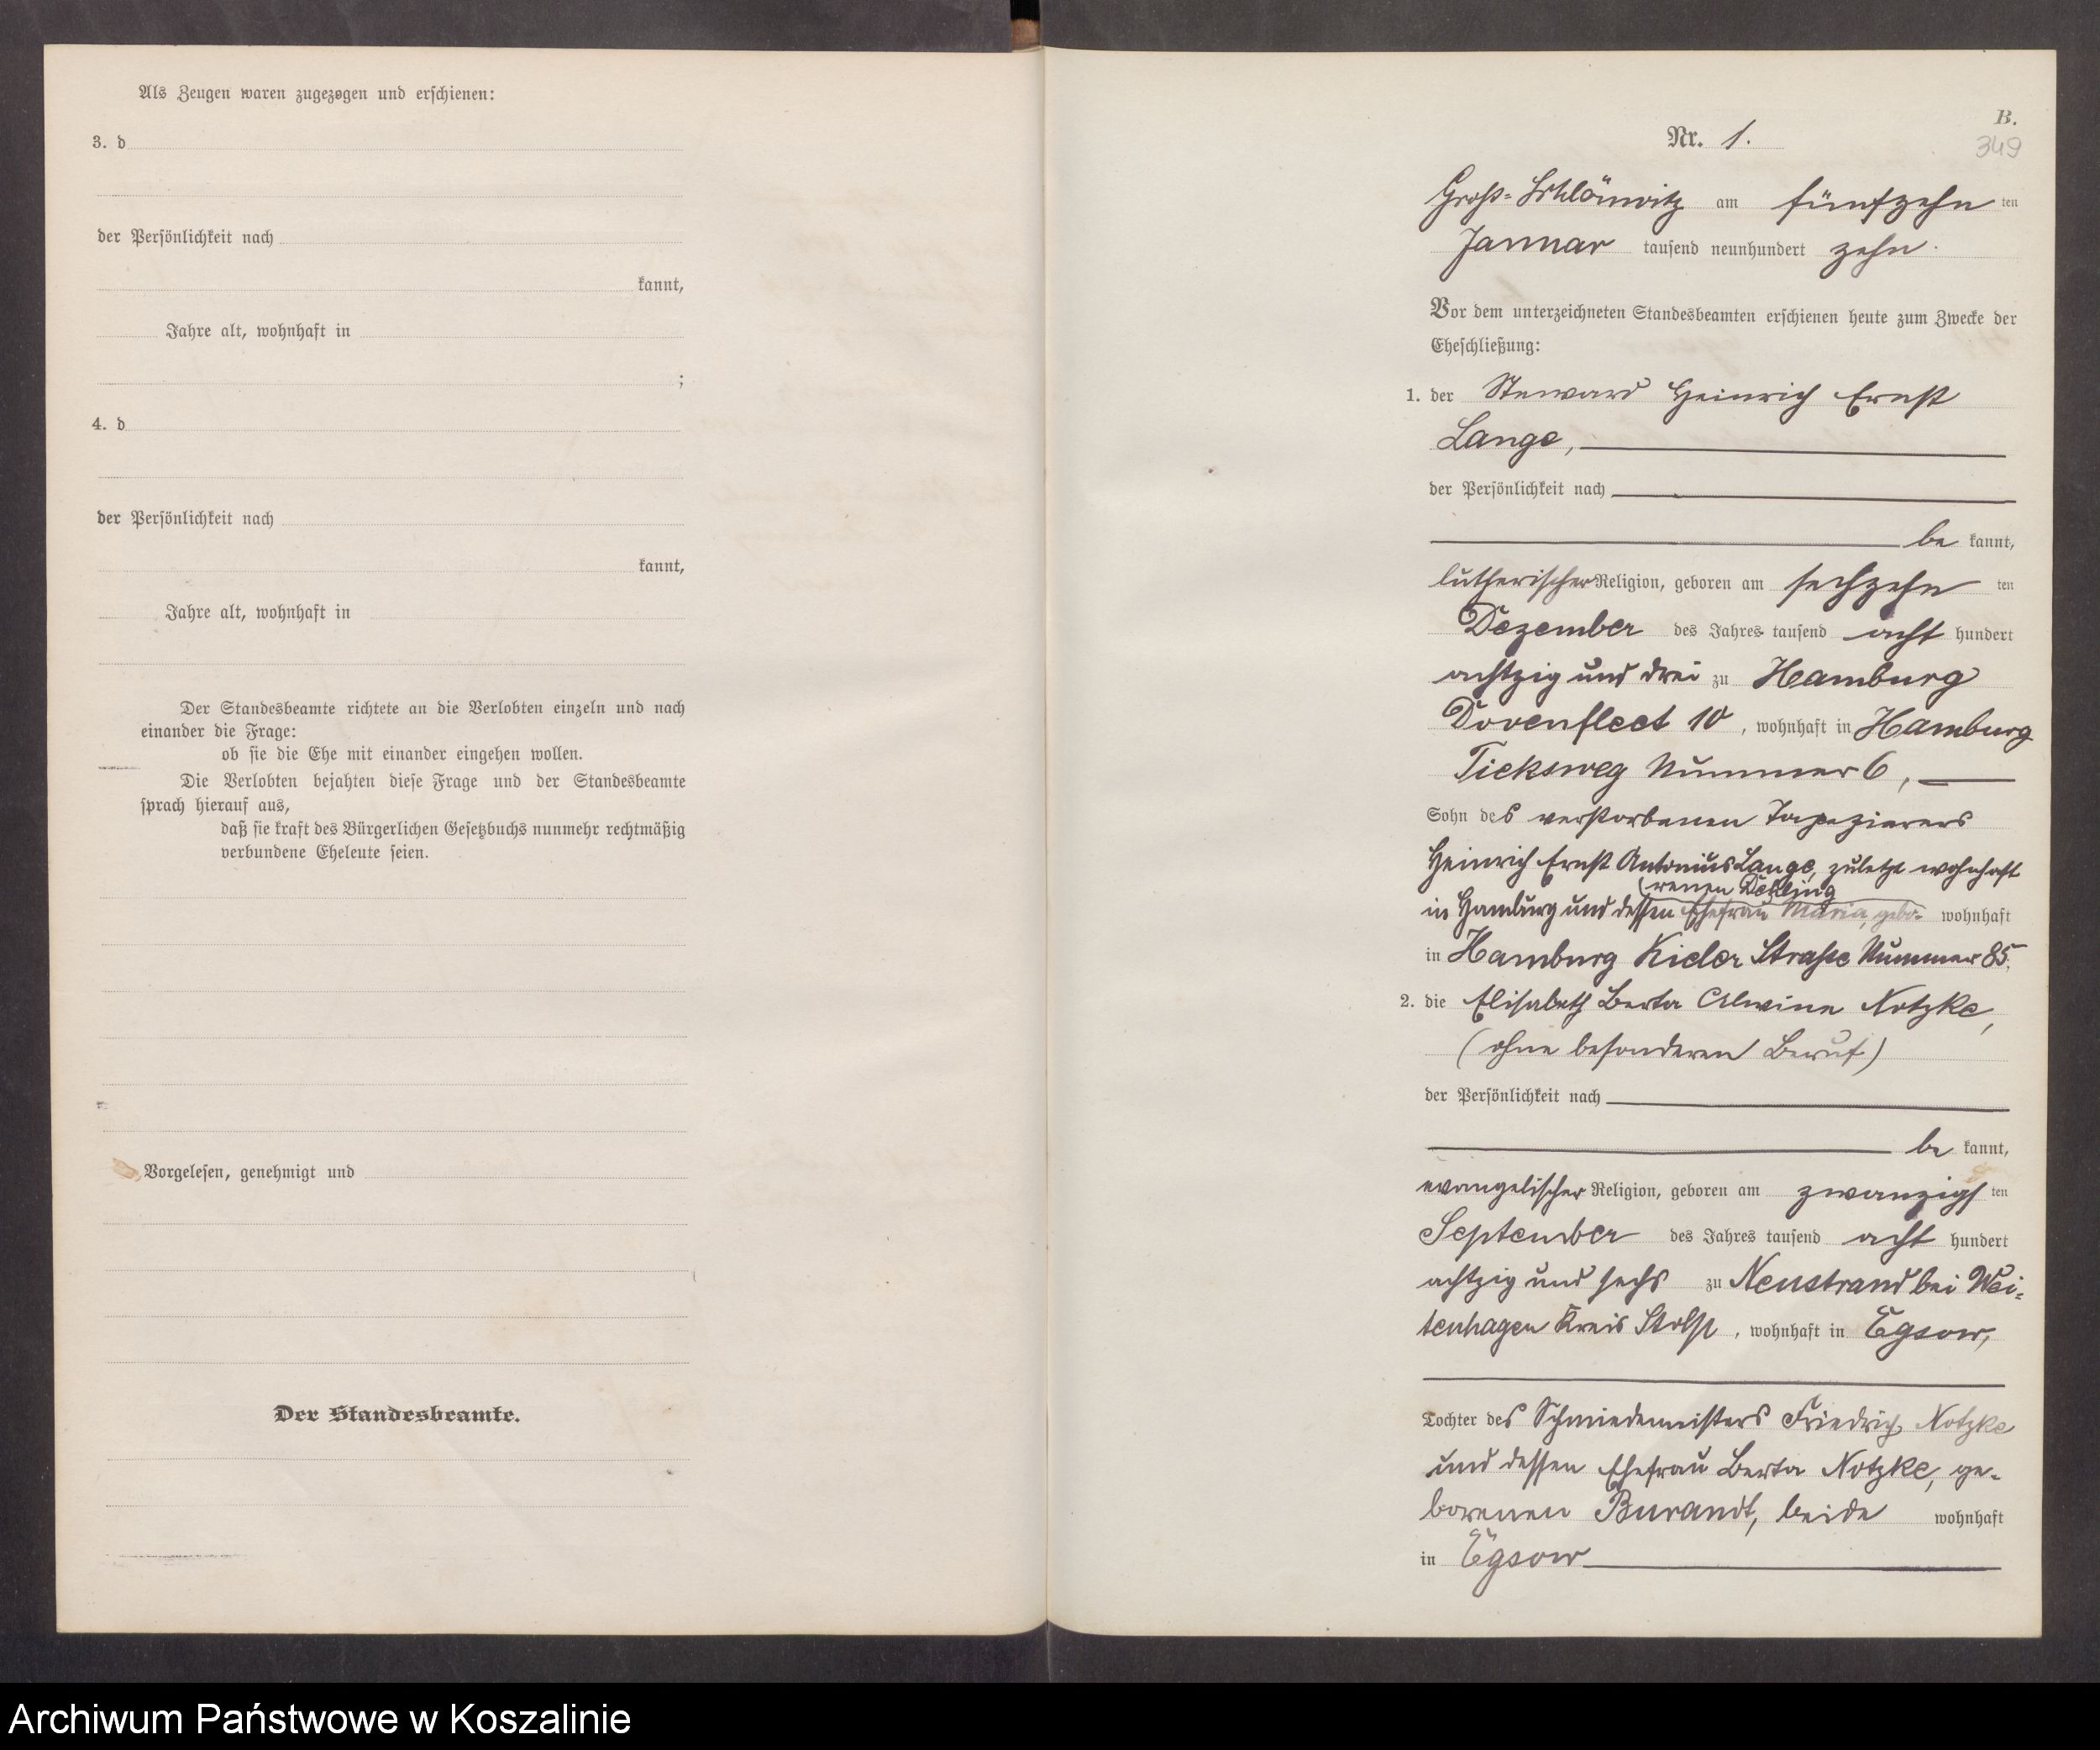 Als Zeugen waren zugezogen und erschienen:
3. d
der Persönlichkeit nach
kannt,
Jahre alt, wohnhaft in
;
4. d
der Persönlichkeit nach
kannt,
Jahre alt, wohnhaft in
Der Standesbeamte richtete an die Verlobten einzeln und nach
einander die Frage:
ob sie die Ehe mit einander eingehen wollen.
Die Verlobten bejahten diese Frage und der Standesbeamte
sprach hierauf aus,
daß sie kraft des Bürgerlichen Gesetzbuchs nunmehr rechtmäßig
verbundene Eheleute seien.
Vorgelesen, genehmigt und
Der Standesbeamte.
B.
Nr. 1.
349
Groß-Schlönwitz am fünfzehn ten
Januar tausend neunhundert zehn.
Vor dem unterzeichneten Standesbeamten erschienen heute zum Zwecke der
Eheschließung:
1. der Steward Heinrich Ernst
Lange,
der Persönlichkeit nach
be kannt,
lutherischer Religion, geboren am sechzehn ten
Dezember des Jahres tausend acht hundert
achtzig und drei zu Hamburg
Dovenfleet 10, wohnhaft in Hamburg
Tieksweg Nummer 6,
Sohn des verstorbenen Tapezierers
Heinrich Ernst Antonius Lange, zuletzt wohnhaft
(renen
in Hamburg und dessen Ehefrau Maria, gebo- wohnhaft
in Hamburg Kieler Straße Nummer 85;
2. die Elisabeth Berta Alwine Notzke,
(ohne besonderen Beruf)
der Persönlichkeit nach
be kannt,
evangelischer Religion, geboren am zwanzigs ten
September des Jahres tausend acht hundert
achtzig und sechs zu Neustrand bei Wei-
tenhagen Kreis Stolp, wohnhaft in Egsow,
Tochter des Schmiedemeisters Friedrich Notzke
und dessen Ehefrau Berta Notzke, ge-
borenen Burandt, beide wohnhaft
in Egsow
Archiwum Państwowe w Koszalinie